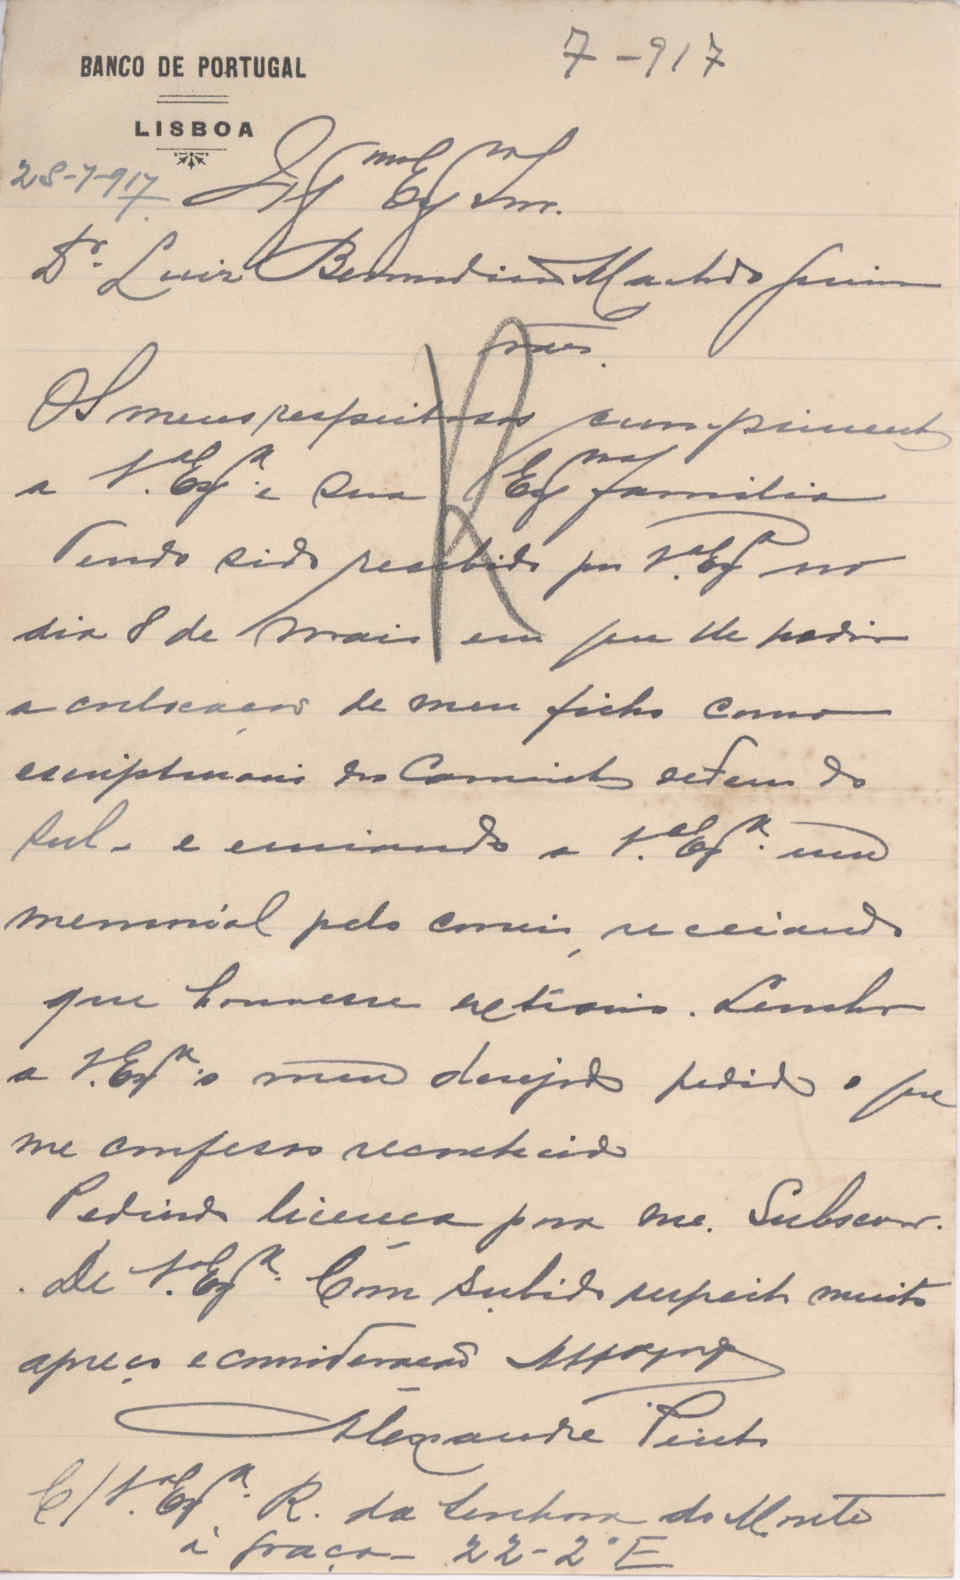 7-917
BANCO DE PORTUGAL
LISBOA
28-7-917
Illmo Exmo Snr.
Dr. Luiz Bernardino Machado Guima
rães.
Os meus respeitosos cumprimentos
a V.ª Ex.ª e sua Exma familia
Tendo sido recebido por V.ª Ex.ª no
dia 8 de Maio em que lhe pedi
a collocação de meu filho como
escripturario dos Caminhos de ferro do
Sul - e enviando a V.ª Ex.ª um
memorial pelo correio, receiando
que houvesse extravio. Lembro
a V.ª Ex.ª o meu desejado pedido o que
me confesso reconhecido
Pedindo licença para me Subscrever.
De V.ª Ex.ª Com subido respeito muito
apreço e consideração
Alexandre Pinto
C/ V.ª Ex.ª R. da Senhora do Monte
à Graça - 22-2º E